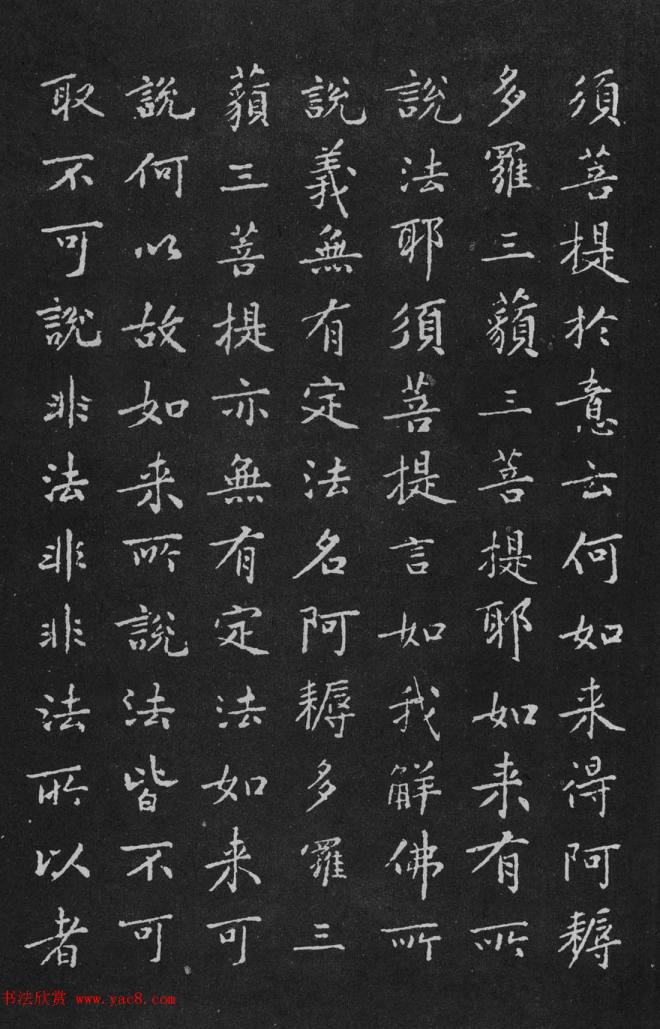 須菩提於意云何如来得阿耨
多羅三藐三菩提耶如来有所
說法耶須菩提言如我解佛所
說義無有定法名阿耨多羅三
藐三菩提亦無有定法如来可
說何以故如来所說法皆不可
取不可說非法非非法所以者
书法欣赏 www.yac8.com